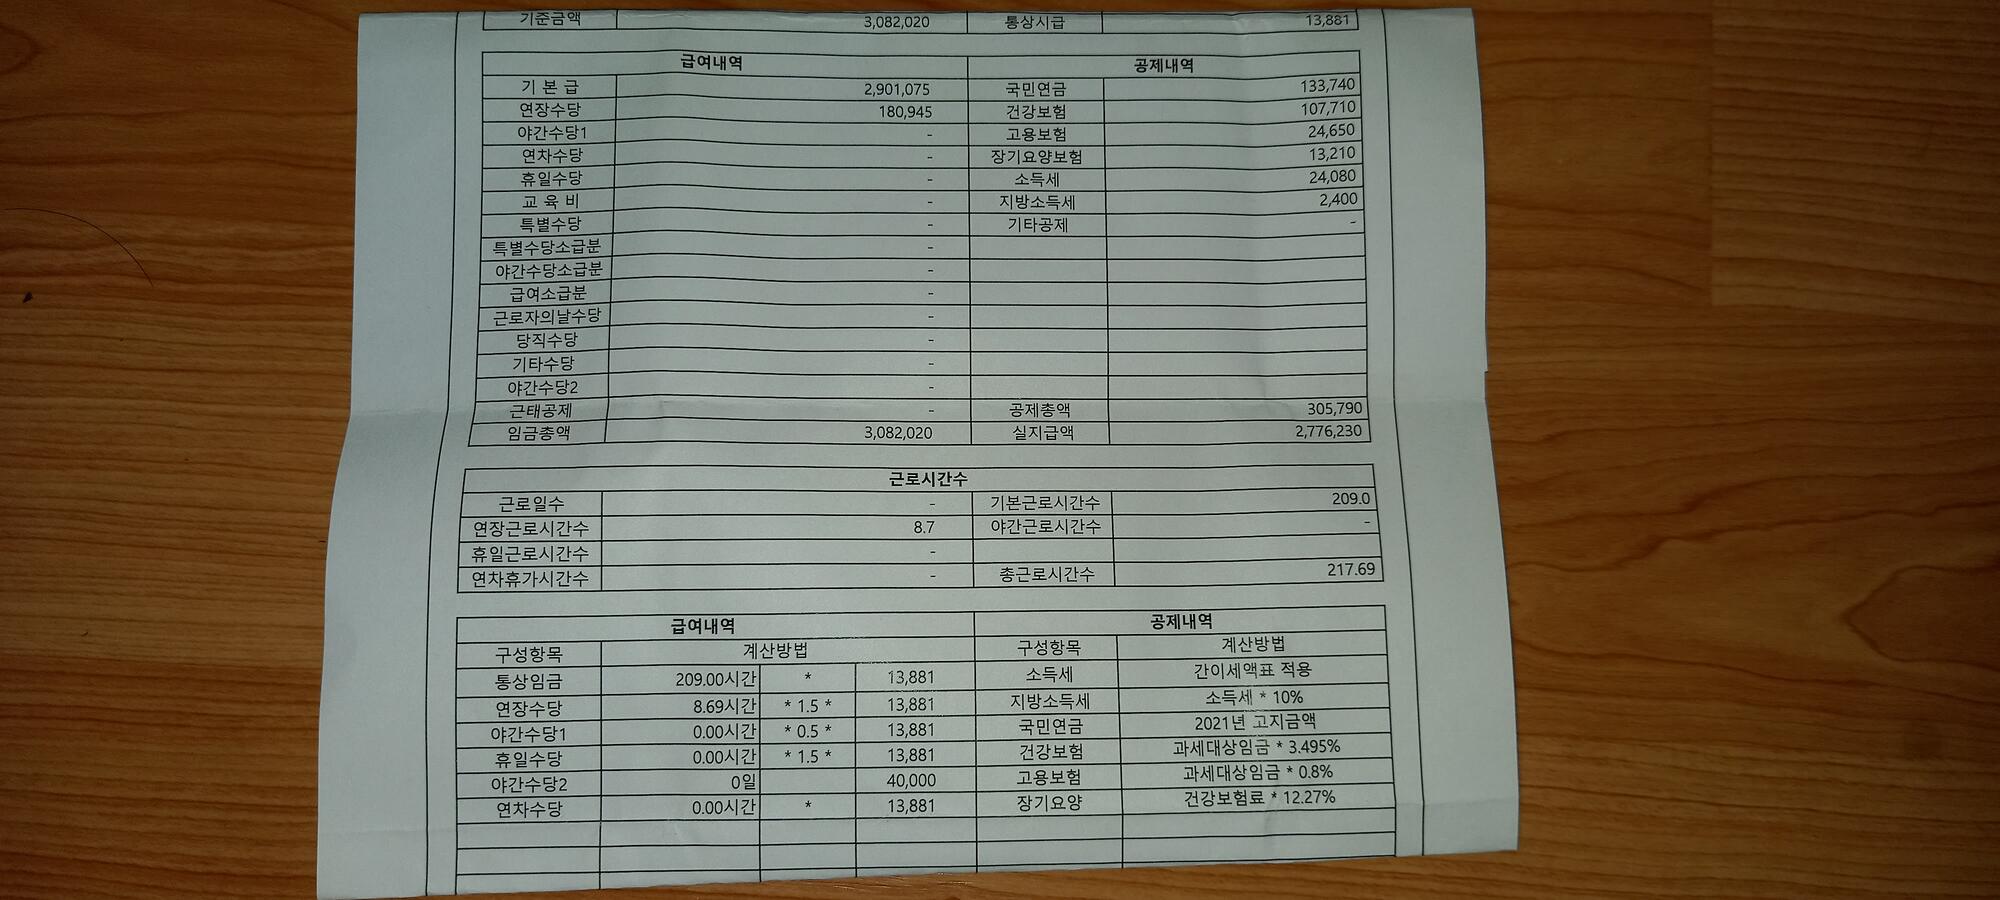 기준금액 3,082,020 통상시급 13,881
급여내역 공제내역
기 본 급 2,901,075 국민연금 133,740
연장수당 180,945 건강보험 107,710
야간수당1 - 고용보험 24,650
연차수당 - 장기요양보험 13,210
휴일수당 - 소득세 24,080
교 육 비 - 지방소득세 2,400
특별수당 - 기타공제 -
특별수당소급분 -
야간수당소급분 -
급여소급분 -
근로자의날수당 -
당직수당 -
기타수당 -
야간수당2 -
근태공제 - 공제총액 305,790
임금총액 3,082,020 실지급액 2,776,230
근로시간수
근로일수 - 기본근로시간수 209.0
연장근로시간수 8.7 야간근로시간수 -
휴일근로시간수 -
연차휴가시간수 - 총근로시간수 217.69
급여내역 공제내역
구성항목 계산방법 구성항목 계산방법
통상임금 209.00시간 * 13,881 소득세 간이세액표 적용
연장수당 8.69시간 * 1.5 * 13,881 지방소득세 소득세 * 10%
야간수당1 0.00시간 * 0.5 * 13,881 국민연금 2021년 고지금액
휴일수당 0.00시간 * 1.5 * 13,881 건강보험 과세대상임금 * 3.495%
야간수당2 0일 40,000 고용보험 과세대상임금 * 0.8%
연차수당 0.00시간 * 13,881 장기요양 건강보험료 * 12.27%